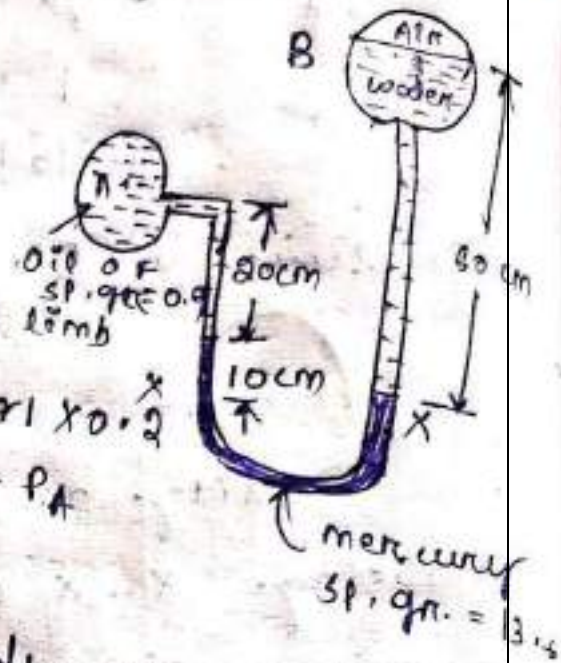 Air
B
water
A
oil of
sp.gr = 0.9
limb
20cm
10cm
50 cm
X
X
×0.2
PA
mercury
sp. gr. = 13.6